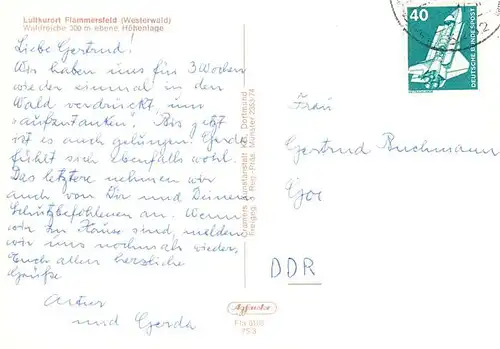 Luftkurort Flammersfeld (Westerwald)
Waldreiche 300 m ebene Höhenlage
Liebe Gertrud!
Wir haben uns für 3 Wochen
wieder einmal in den
Wald verdrückt, um
"aufzutanken". Bis jetzt
ist es auch gelungen. Gerda
fühlt sich ebenfalls wohl.
Das letztere nehmen wir
auch von Dir und Deinen
Schutzbefohlenen an. Wenn
wir zu Hause sind, melden
wir uns nochmals wieder.
Euch allen herzliche
Grüße
Artur
und Gerda
Cramers Kunstanstalt Dortmund
Freigeg. d. Reg.-Präs. Münster
40
DEUTSCHE BUNDESPOST
Frau
Gertrud Buchmann
DDR